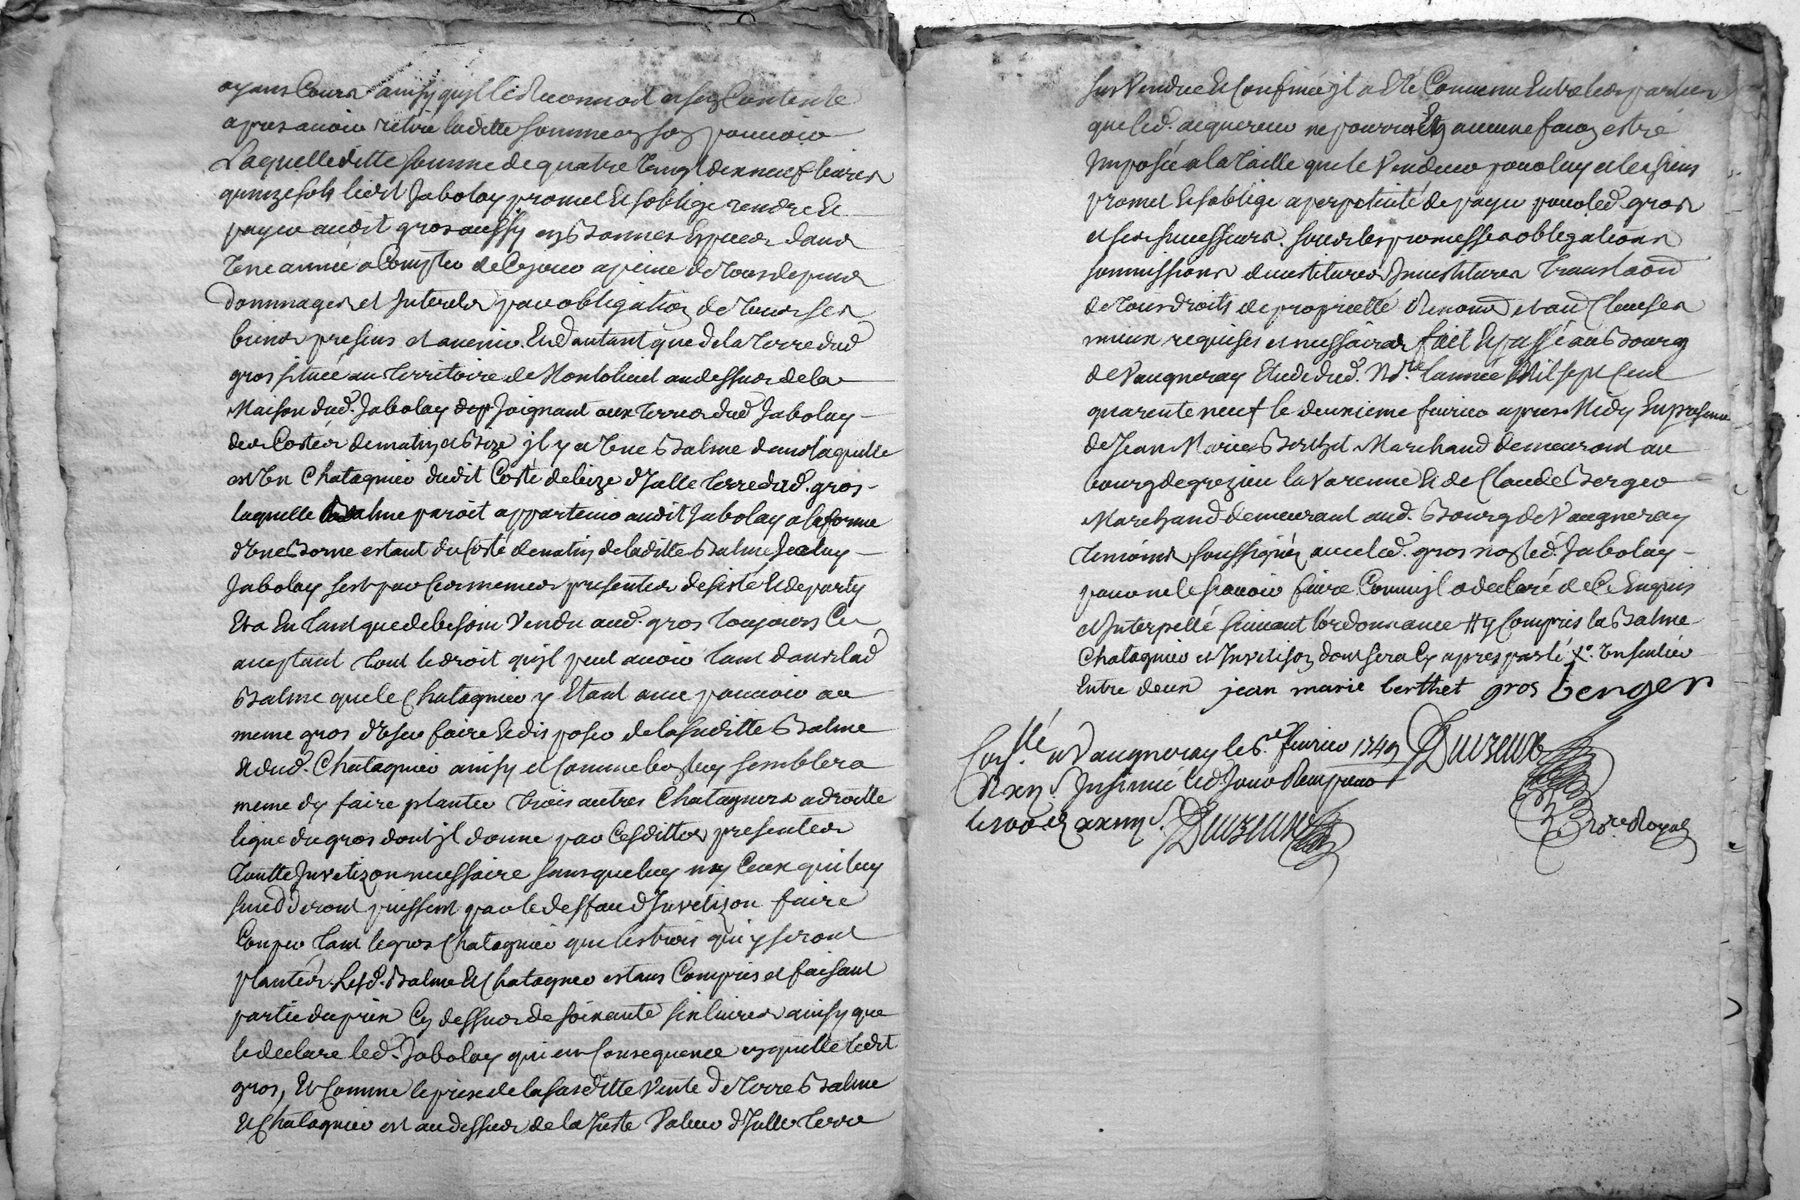 ayant Cours ainsy qu'jl le Reconnoit et sen Contente
apres avoir retiré laditte somme en son pouvoir
Laquelleditte somme de quatre vingt dixneuf livres
quinze sols ledit Jabolay promet Et soblige rendre Et
payer audit gros aussy en Bonnes Especes dans
Une année a Compter de Cejour a peine de Tous depens
dommages et Interets par obligation de Tous ses
biens presens et avenir. Et d'autant que de la Terre dud
gros située au Territoire de Montolivet audessus de la
Maison dud. Jabolay Joignant aux Terres dud Jabolay
des Costés de matin et Bize jl y a Une Balme dans laquelle
est Un Chatagnier dudit Costé de bize d'Jcelle Terre dud. gros
laquelle Balme paroit appartenir audit Jabolay a la forme
d'Une Borne estant du Costé de matin de laditte Balme Jceluy
Jabolay sest par Ces memes presentes desisté Et departy
Et a En Tant que de besoin Vendu aud. gros Toujours
acceptant Tout le droit qu'jl peut avoir Tant dans lad
Balme que le Chatagnier y Etant avec pouvoir au
meme gros d'User faire Et disposer de la susditte Balme
Et dud. Chatagnier ainsy et Comme bon luy semblera
meme d'y faire planter Trois autres Chatagners a droitte
ligne du gros dont jl donne par Cesdittes presentes
Toutte Jnvetizon necessaire sans que luy ny Ceux qui luy
succederont puissent par le deffaud d'Jnvetizon faire
Couper Tant le gros Chatagnier que les trois qui y seront
plantés. Lesd. Balme Et Chatagnier estans Compris et faisant
partie du prix Cy dessus de soixante six livres ainsy que
le declare led. Jabolay qui en Consequence en quitte ledit
gros, Et Comme le prix de la susditte Vente de Terre Balme
Et Chatagnier est audessus de la Juste Valeur d'Jcelle Terre
sus Vendue Et Confinée jl a Eté Convenu Entre les parties
que led. acquereur ne pourra En aucune facon estre
Imposée a la Taille que le Vendeur pour luy et les siens
promet Et soblige a perpetuité de payer pour led. gros
et ses successeurs. sous les promesses obligations
soumissions devestitures Jnvestitures Translaon
de Tous droits de proprietté Renonon et au Clauses
mieux requises et necessaires fait Et passé au Bourg
de Vaugneray Etude dud. No.re lannée Mil sept Cent
quarente neuf le deuxieme fevrier apres Midy En presence
de Jean Marie Berthet Marchand demeurant au
bourg de grezieu la Varenne Et de Claude Berger
Marchand demeurant aud. Bourg de Vaugneray
Temoins soussignés avec led. gros non led. Jabolay
pour ne le scavoir faire Comm'jl a declaré de Ce Enquis
et Interpellé suivant l'ordonnance # y Compris la Balme
Chatagnier et Jnvetison dont sera Cy apres parlé X. Un sentier
Entre deux jean marie berthet gros berger
Con.llé a Vaugneray le 6.e fevrier 1749 Duizeux
Insinué led. Jour
Duizeux No.re Royal